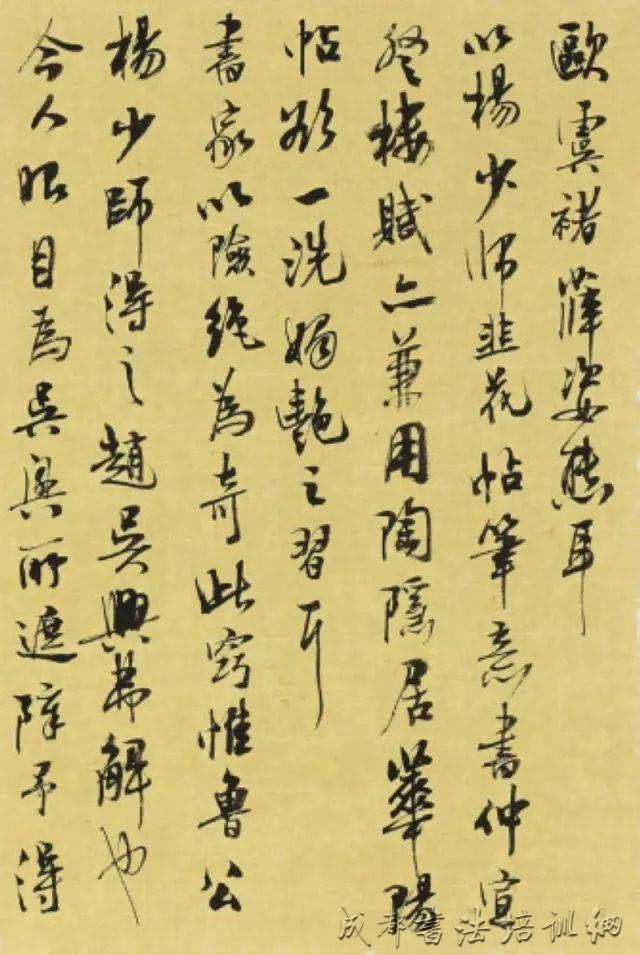 歐虞褚薛姿態耳
以楊少師韭花帖筆意書仲宣
登樓賦亦兼用陶隱居華陽
帖欲一洗媚艷之習耳
書家以險絕為奇此竅惟魯公
楊少師得之趙吳興弗解也
今人眼目為吳興所遮障予得
成都書法培訓網